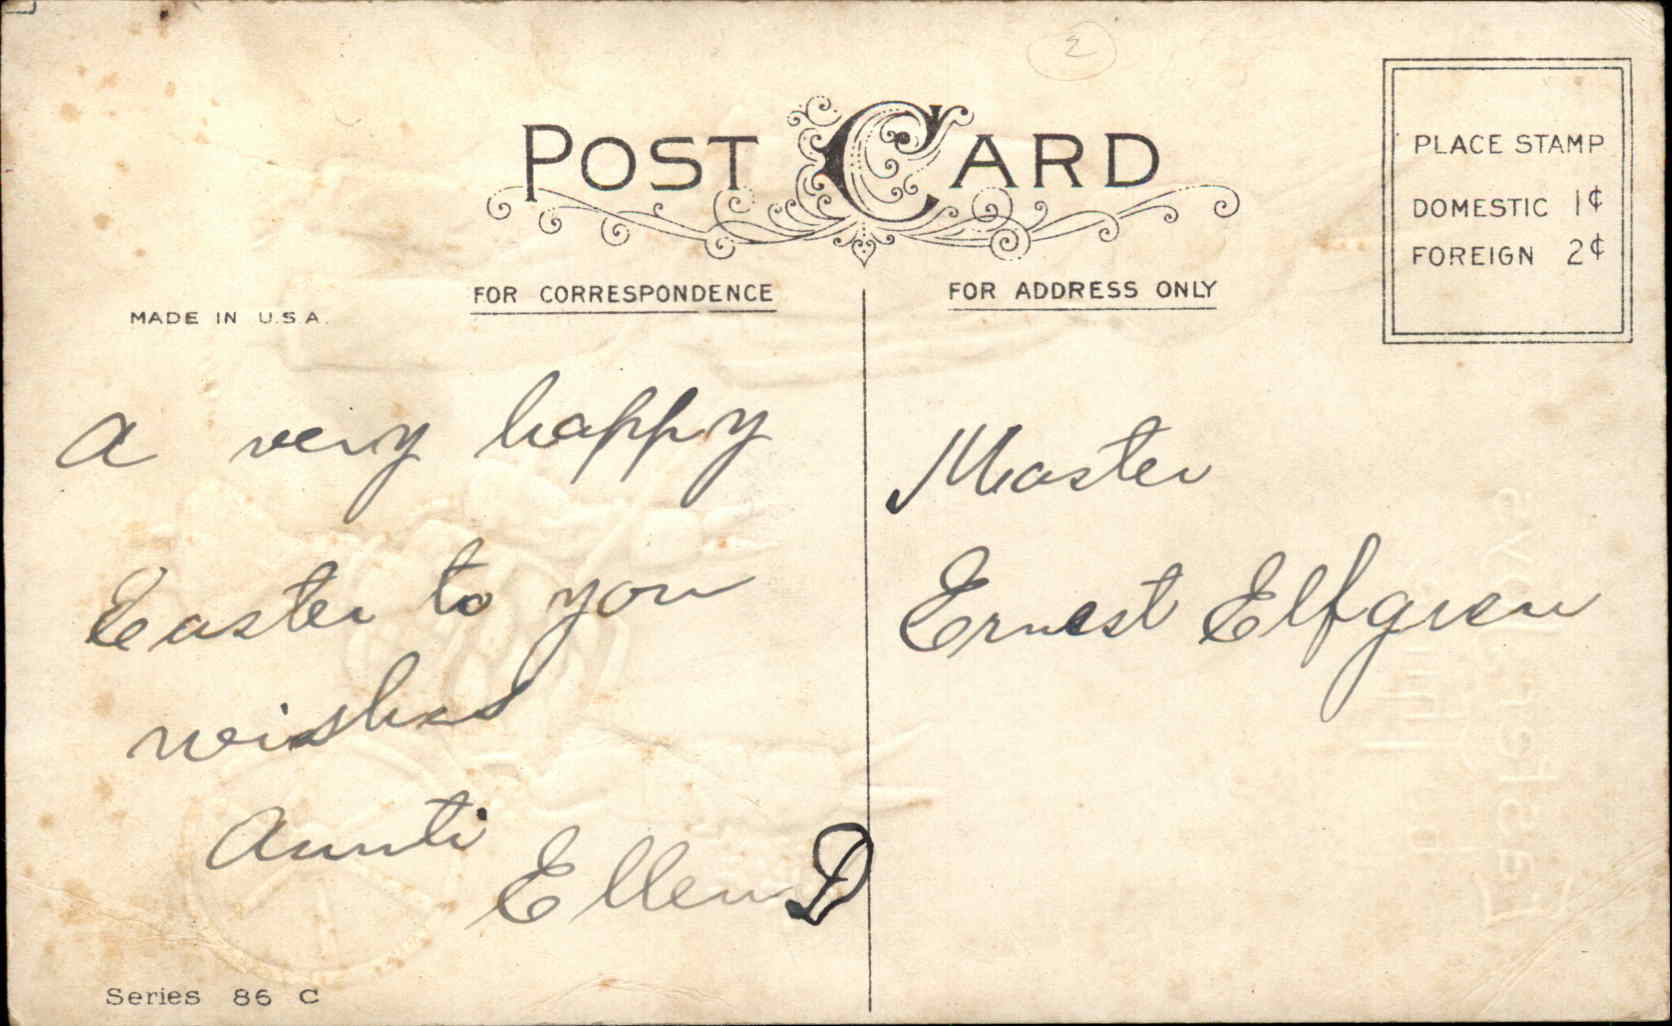 2
POST CARD
PLACE STAMP
DOMESTIC 1¢
FOREIGN 2¢
FOR CORRESPONDENCE
FOR ADDRESS ONLY
MADE IN U.S.A.
A very happy
Easter to you
wishes
Aunti
Ellen D
Master
Ernest Elfgren
Series 86 C